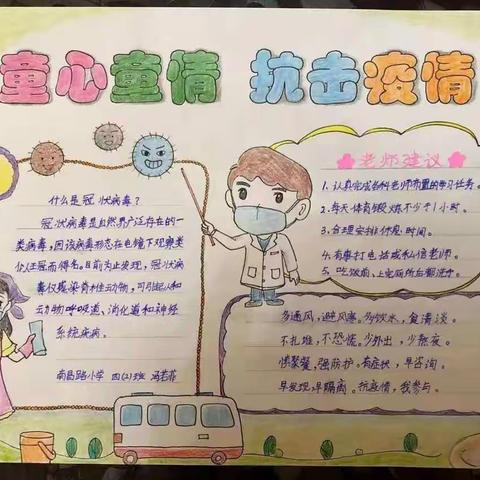 童心童情 抗击疫情
什么是冠状病毒?
冠状病毒是自然界广泛存在的
一类病毒,因该病毒形态在电镜下观察类
似王冠而得名。目前为止发现,冠状病
毒仅感染脊椎动物,可引起人和
动物呼吸道、消化道和神经
系统疾病。
南昌路小学 四(2)班
老师建议
1.认真完成各科老师布置的学习任务。
2.每天体育锻炼不少于1小时。
3.合理安排休息时间。
4.有事打电话或私信老师。
5.吃饭前、上完厕所后都洗手。
多通风,避风寒。多饮水,食清淡。
不扎堆,不恐慌。少外出,少熬夜。
慎聚餐,强防护。有症状,早咨询。
早发现,早隔离。抗疫情,我参与。